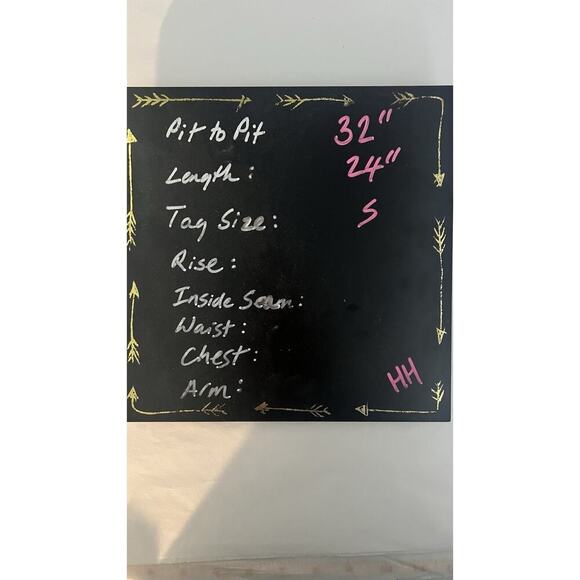 Pit to Pit 32"
Length: 24"
Tag Size: S
Rise:
Inside Seam:
Waist:
Chest:
Arm:
HH